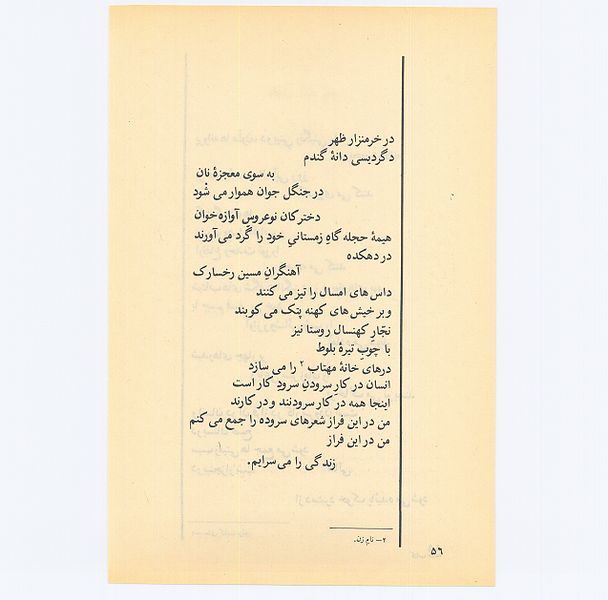 در خرمنزار ظهر
دگردیسی دانهٔ گندم
به سوی معجزهٔ نان
در جنگل جوان هموار می شود
دخترکان نوعروسِ آوازه‌خوان
هیمهٔ حجله گاهِ زمستانیِ خود را گرد می‌آورند
در دهکده
آهنگرانِ مسین رخسارک
داس های امسال را تیز می کنند
و بر خیش های کهنه پتک می کوبند
نجّارِ کهنسال روستا نیز
با چوبِ تیرهٔ بلوط
درهای خانهٔ مهتاب ۲ را می سازد
انسان در کار سرودنِ سرودِ کار است
اینجا همه در کار سرودنند و در کارند
من در این فراز شعرهای سروده را جمع می کنم
من در این فراز
زندگی را می سرایم.
۲– نام زن.
۵۶